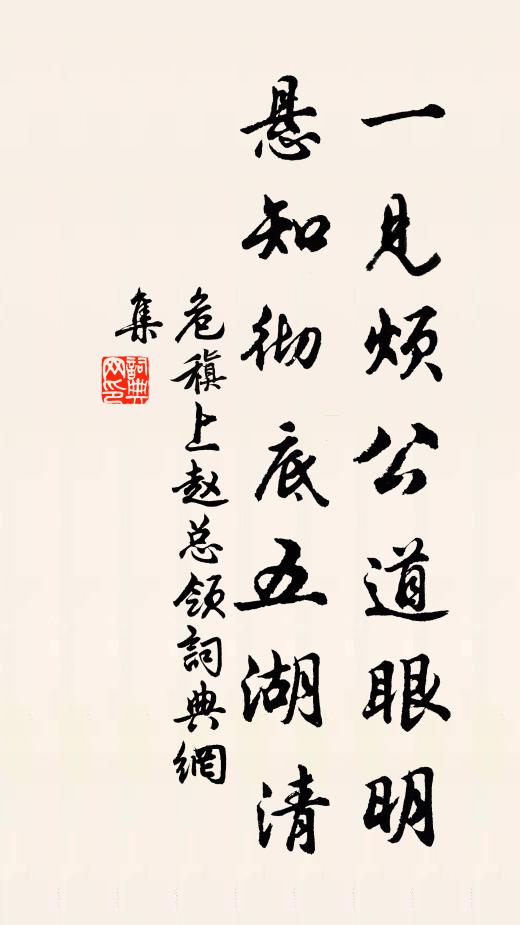 一见烦公道眼明
悬知彻底五湖清
危稹上赵总领詞典網
集
詞典网印